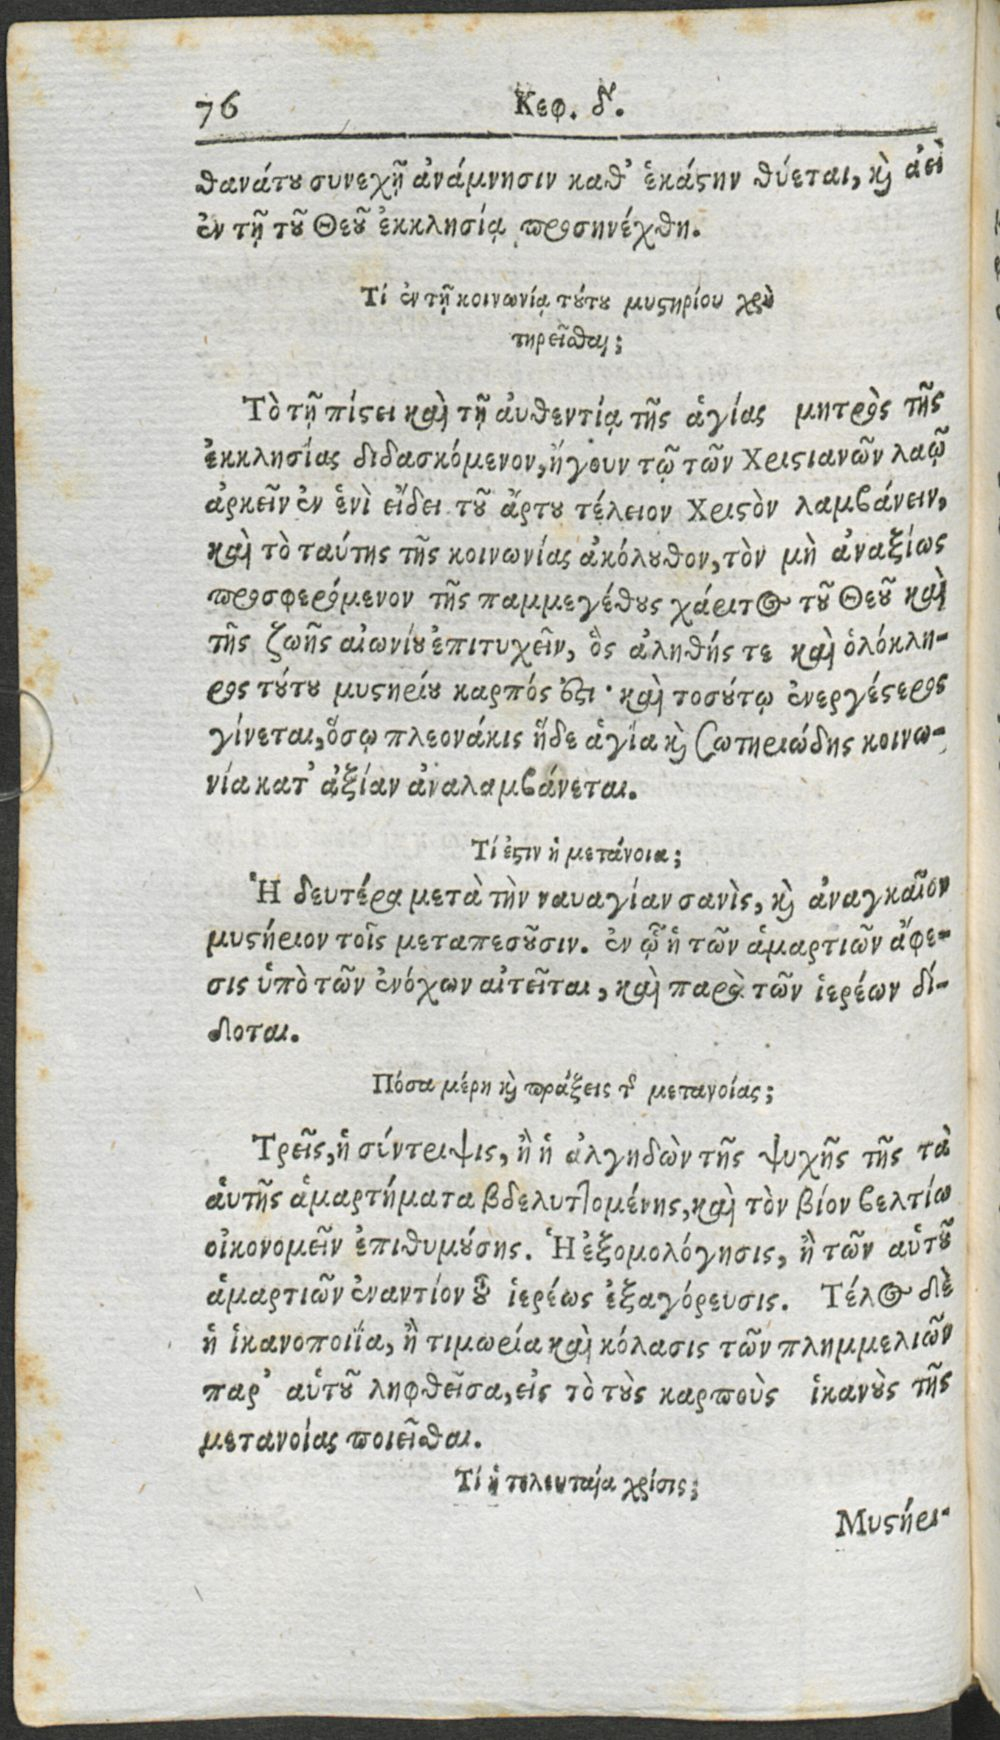 76 Κεφ. δ.
θανάτȣ συνεχῆ ἀνάμνησιν καθ' ἑκάϛην θύεται, κỳ ἀεὶ
ἐν τῇ τȣ͂ Θεȣ͂ ἐκκλησίᾳ προσηνέχθη.
Τί ἐν τῇ κοινωνίᾳ τȣ́τȣ μυϛηρίου χρὴ
τηρεῖσθαι;
Τὸ τῇ πίϛει καὶ τῇ ἀυθεντίᾳ τῆς ἁγίας μητρὸς τῆς
ἐκκλησίας διδασκόμενον, ἤγουν τῷ τῶν Χριϛιανῶν λαῷ
ἀρκεῖν ἐν ἑνὶ εἴδει τȣ͂ ἄρτȣ τέλειον Χριϛὸν λαμβάνειν,
καὶ τὸ ταύτης τῆς κοινωνίας ἀκόλȣθον, τὸν μὴ ἀναξίως
προσφερόμενον τῆς παμμεγέθȣς χάριτος τȣ͂ Θεȣ͂ καὶ
τῆς ζωῆς αἰωνίȣ ἐπιτυχεῖν, ὃς ἀληθής τε καὶ ὁλόκλη-
ρος τȣ́τȣ μυϛηρίȣ καρπός ἐϛι· καὶ τοσȣ́τῳ ἐνεργέϛερος
γίνεται, ὅσῳ πλεονάκις ἥδε ἁγία κỳ σωτηριώδης κοινω-
νία κατ' ἀξίαν ἀναλαμβάνεται.
Τί ἐϛιν ἡ μετάνοια;
Ἡ δευτέρα μετὰ τὴν ναυαγίαν σανὶς, κỳ ἀναγκαῖον
μυϛήριον τοῖς μεταπεσȣ͂σιν. ἐν ᾧ ἡ τῶν ἁμαρτιῶν ἄφε-
σις ὑπὸ τῶν ἐνόχων αἰτεῖται, καὶ παρὰ τῶν ἱερέων δί-
δοται.
Πόσα μέρη κỳ πράξεις τῆς μετανοίας;
Τρεῖς, ἡ σίντριψις, ἢ ἡ ἀλγηδὼν τῆς ψυχῆς τῆς τὰ
ἁυτῆς ἁμαρτήματα βδελυττομένης, καὶ τὸν βίον βελτίω
οἰκονομεῖν ἐπιθυμȣ́σης. Ἡ ἐξομολόγησις, ἢ τῶν αὑτȣ͂
ἁμαρτιῶν ἐναντίον τȣ͂ ἱερέως ἐξαγόρευσις. Τέλος δὲ
ἡ ἱκανοποιΐα, ἢ τιμωρία καὶ κόλασις τῶν πλημμελιῶν
παρ' αὑτȣ͂ ληφθεῖσα, εἰς τὸ τȣ̀ς καρποὺς ἱκανȣ̀ς τῆς
μετανοίας ποιεῖσθαι.
Τί ἡ τελευταία χρίσις;
Μυϛήρι-